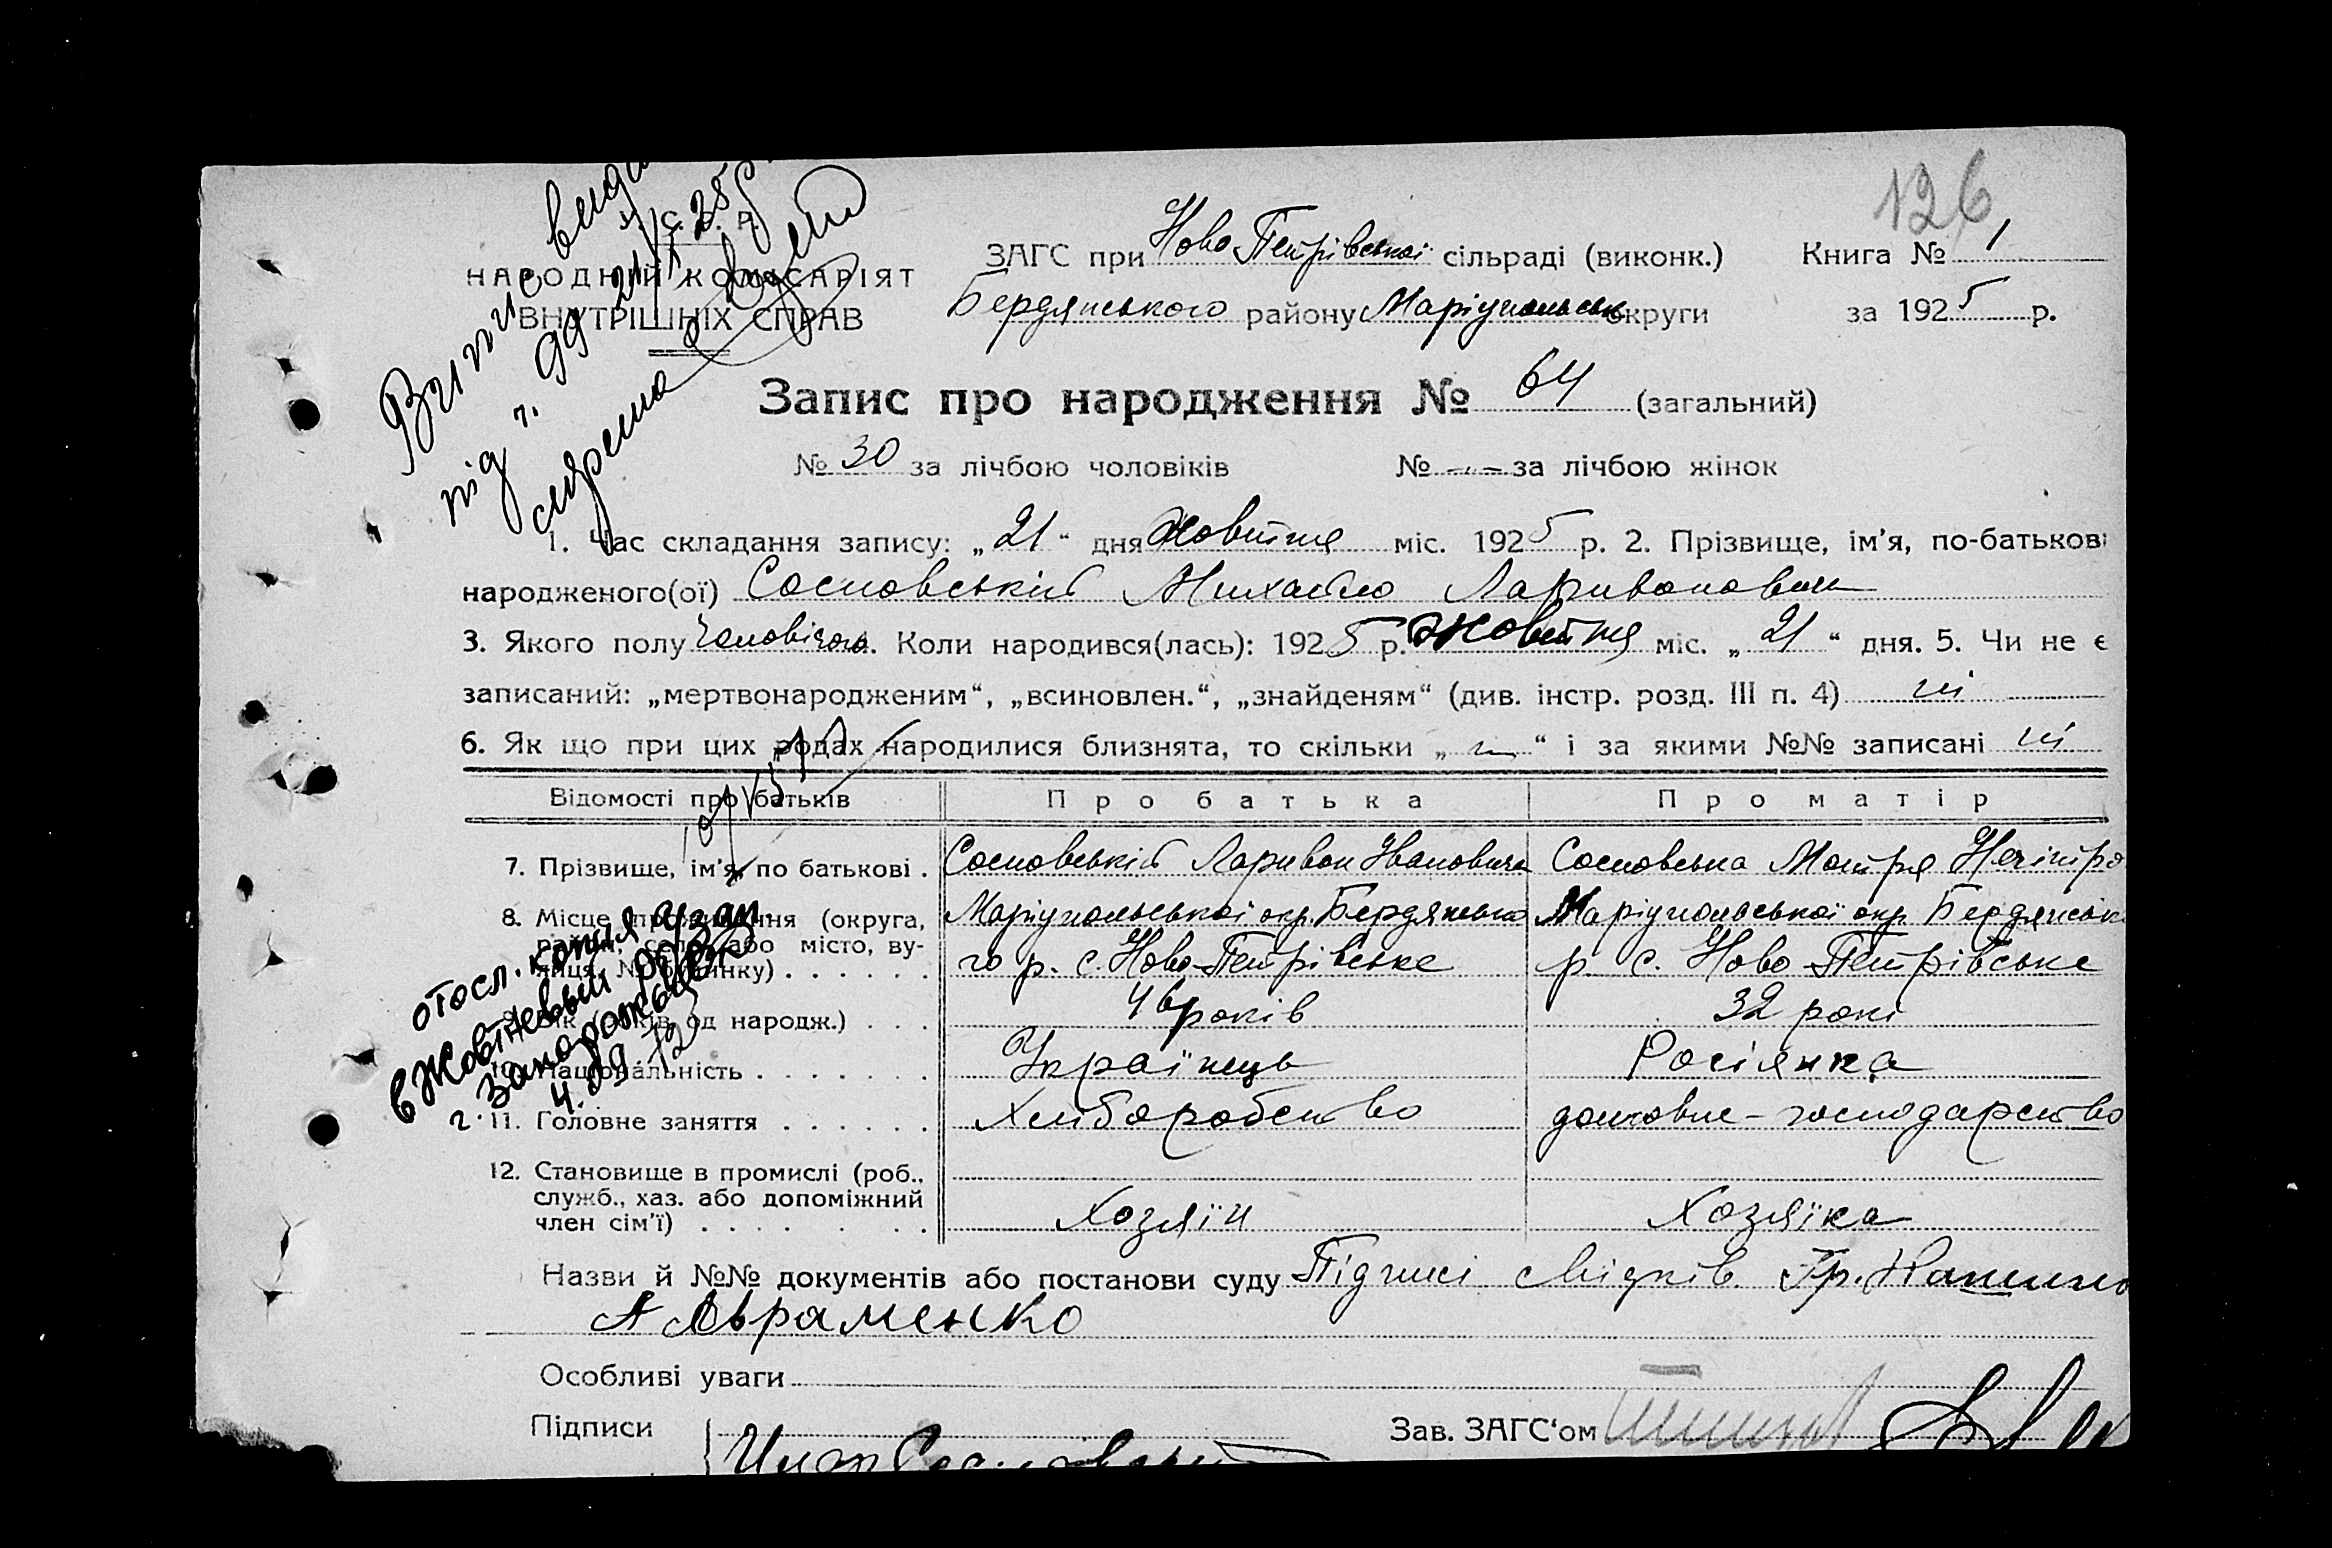 126
У. С. Р. Р.
НАРОДНІЙ КОМІСАРІЯТ
ВНУТРІШНІХ СПРАВ
ЗАГС при Ново Петрівської сільраді (виконк.) Книга № 1
Бердянського району Маріупольськ округи за 1925 р.
Випис видан
під ч. 99 21/X 25 р.
Запис про народження № 64 (загальний)
№ 30 за лічбою чоловіків № -"- за лічбою жінок
1. Час складання запису: „21“ дня Жовтня міс. 1925 р. 2. Прізвище, ім’я, по-батькові
народженого(ої) Сосновський Михайло Ларивонович
3. Якого полу Чоловічого. Коли народився(лась): 1925 р. Жовтня міс. „21“ дня. 5. Чи не є
записаний: „мертвонародженим“, „всиновлен.“, „знайденям“ (див. інстр. розд. III п. 4) ні
6. Як що при цих родах народилися близнята, то скільки „ “ і за якими №№ записані ні
Відомості про батьків Про батька Про матір
7. Прізвище, ім’я, по батькові . Сосновський Ларивон Іванович Сосновська Мотря Нечіпро
8. Місце проживання (округа, район, село або місто, вулиця, № будинку) . . . . . . Маріупольської окр. Бердянсько Маріупольської окр. Бердянськ
го р. с. Ново-Петрівське р. с. Ново-Петрівське
9. Вік (років од народж.) . . . 46 років 32 рокі
10. Національність . . . . . . . Українець Росіянка
11. Головне заняття . . . . . . Хліборобство домовне-господарство
12. Становище в промислі (роб.,
служб., хаз. або допоміжний
член сім’ї) . . . . . . Хозяїн Хозяїка
отосл. копия а/зап.
в Жовтневый ЗАГС
г. Запорожье
Назви й №№ документів або постанови суду Підписі свідків Гр.
А Авраменко
Особливі уваги
Підписи Зав. ЗАГС‘ом